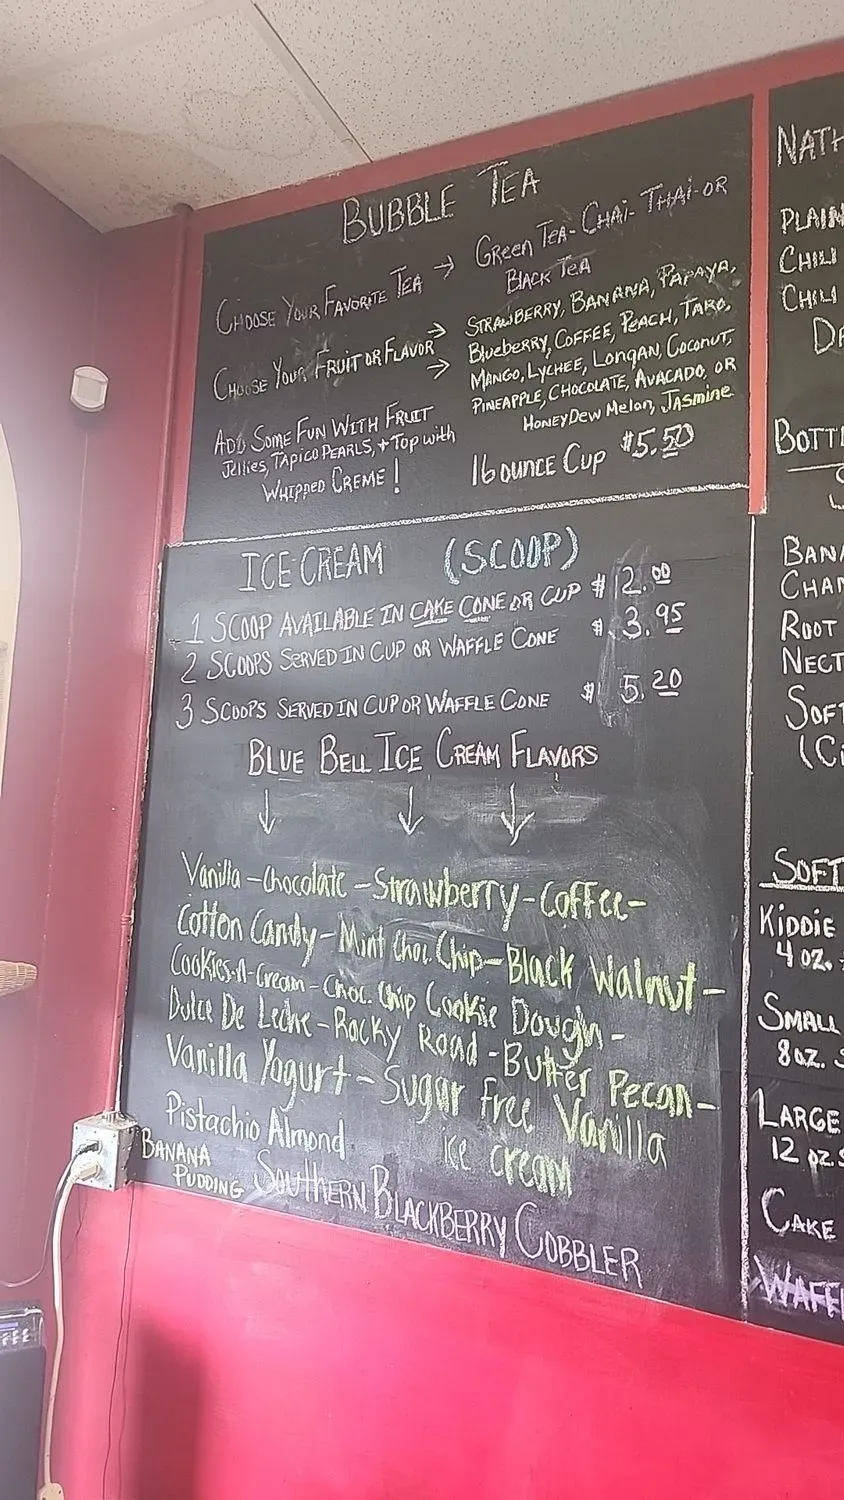 BUBBLE TEA
CHOOSE YOUR FAVORITE TEA → GREEN TEA - CHAI - THAI - OR
BLACK TEA
CHOOSE YOUR FRUIT OR FLAVOR → → STRAWBERRY, BANANA, PAPAYA,
Blueberry, COFFEE, PEACH, TARO,
MANGO, LYCHEE, LONGAN, COCONUT,
PINEAPPLE, CHOCOLATE, AVACADO, OR
HONEYDEW Melon, JASMINE
ADD SOME FUN WITH FRUIT
Jellies, TAPICO PEARLS, + TOP with
WHIPPED CREME!
16 OUNCE CUP $5.50
ICE CREAM (SCOOP)
1 SCOOP AVAILABLE IN CAKE CONE OR CUP $ 2.00
2 SCOOPS SERVED IN CUP OR WAFFLE CONE $ 3.95
3 SCOOPS SERVED IN CUP OR WAFFLE CONE $ 5.20
BLUE BELL ICE CREAM FLAVORS
↓ ↓ ↓
Vanilla - Chocolate - Strawberry - Coffee -
Cotton Candy - Mint Choc. Chip - Black Walnut -
Cookies-n-Cream - Choc. Chip Cookie Dough -
Dulce De Leche - Rocky Road - Butter Pecan -
Vanilla Yogurt - Sugar free Vanilla
ice cream
Pistachio Almond
BANANA
PUDDING
SOUTHERN BLACKBERRY COBBLER
NATH
PLAIN
CHILI
CHILI
BOTT
BANA
CHAM
ROOT
NECT
SOFT
(Ci
SOFT
KIDDIE
4 OZ.
SMALL
8 OZ.
LARGE
12 OZ
CAKE
WAFFL